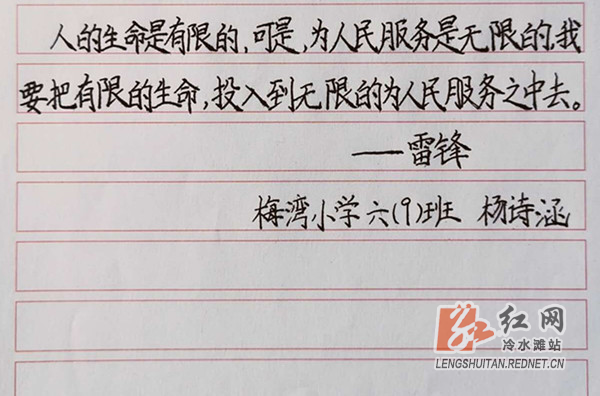 人的生命是有限的,可是,为人民服务是无限的,我
要把有限的生命,投入到无限的为人民服务之中去。
——雷锋
梅湾小学六(9)班 杨诗涵
红网
冷水滩站
LENGSHUITAN.REDNET.CN